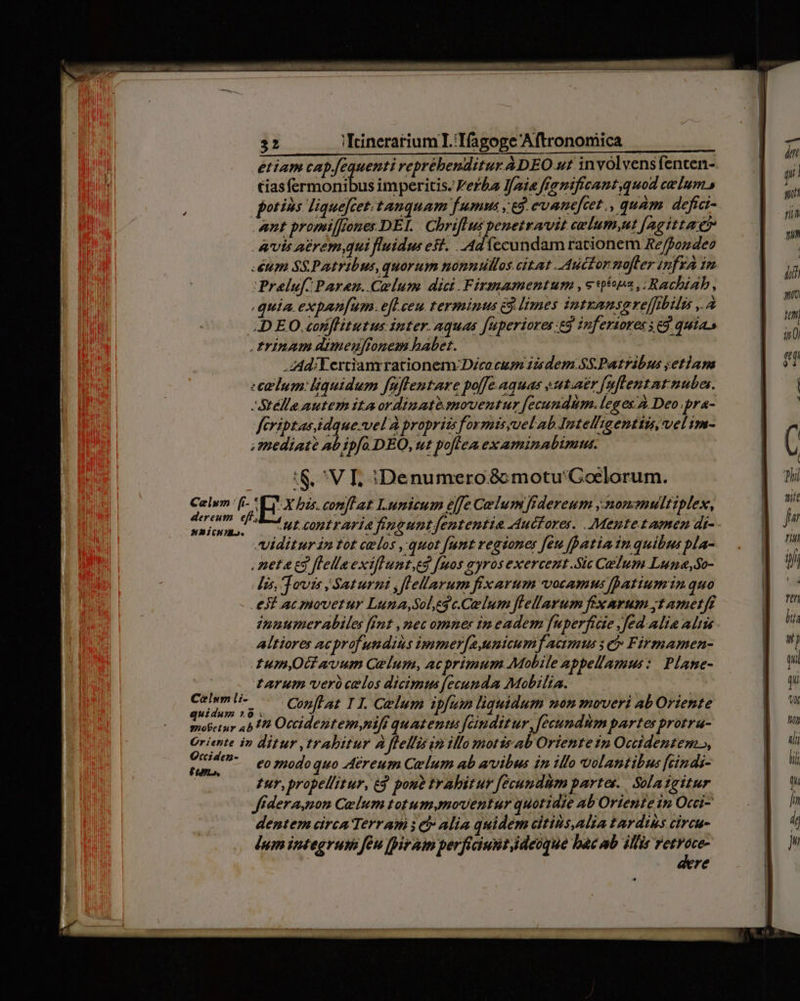 32 Itinerarium I. Isagoge Astronomica
etiam cap. sequenti reprehenditur à DEO ut involvens senten-
tias sermonibus imperitis. Verba Isaiæ significant, quod cœlum
potiùs liquescet tanquam fumus, & evanescet, quàm defici-
ant promissiones DEI. Christus penetravit cælum, ut sagitta &
avis aërem, qui fluidus est. Ad secundam rationem Respondeo
cum SS. Patribus, quorum nonnullos citat Auctor noster infrà in
Prælus. Paræn. Cælum dici Firmamentum, Rachiah,
quia expansum est ceu terminus & limes intransgressibilis, à
DEO constitutus inter aquas superiores & inferiores; & quia
trinam dimensionem habet.
Ad Tertiam rationem Dico cum iisdem SS. Patribus, etiam
cælum liquidum sustentare posse aquas, ut aër sustentat nubes.
Stellæ autem ita ordinatè moventur secundùm leges à Deo præ-
scriptas, idque vel à propriis formis, vel ab Intelligentiis, vel im-
mediatè ab ipso DEO, ut postea examinabimus.
§. VI. De numero & motu Cœlorum.
Cælum si-
dereum est
unicum.
EX his constat I. unicum esse Cælum sidereum, non multiplex,
ut contraria fingunt sententiæ Auctores. Mente tamen di-
viditur in tot cælos, quot sunt regiones seu spatia in quibus pla-
netæ & stellæ existunt, & suos gyros exercent. Sic Cælum Lunæ, So-
lis, Jovis, Saturni, stellarum fixarum vocamus spatium in quo
est ac movetur Luna, Sol, &c. Cælum stellarum fixarum, tametsi
innumerabiles sint, nec omnes in eadem superficie, sed aliæ aliis
altiores ac profundiùs immersæ, unicum facimus; & Firmamen-
tum, Octavum Cælum, ac primum Mobile appellamus: Plane-
tarum verò cælos dicimus secunda Mobilia.
Cælum li-
quidum nō
movetur ab
Oriente in
Occiden-
tem.
Constat II. Cælum ipsum liquidum non moveri ab Oriente
in Occidentem, nisi quatenus scinditur, secundùm partes protru-
ditur, trahitur à stellis in illo motis ab Oriente in Occidentem,
eo modo quo Aëreum Cælum ab avibus in illo volantibus scindi-
tur, propellitur, & ponè trahitur secundùm partes. Sola igitur
sidera, non Cælum totum, moventur quotidie ab Oriente in Occi-
dentem circa Terram; & alia quidem citiùs, alia tardiùs circu-
lum integrum seu spiram perficiunt, ideoque hæc ab illis retroce-
dere